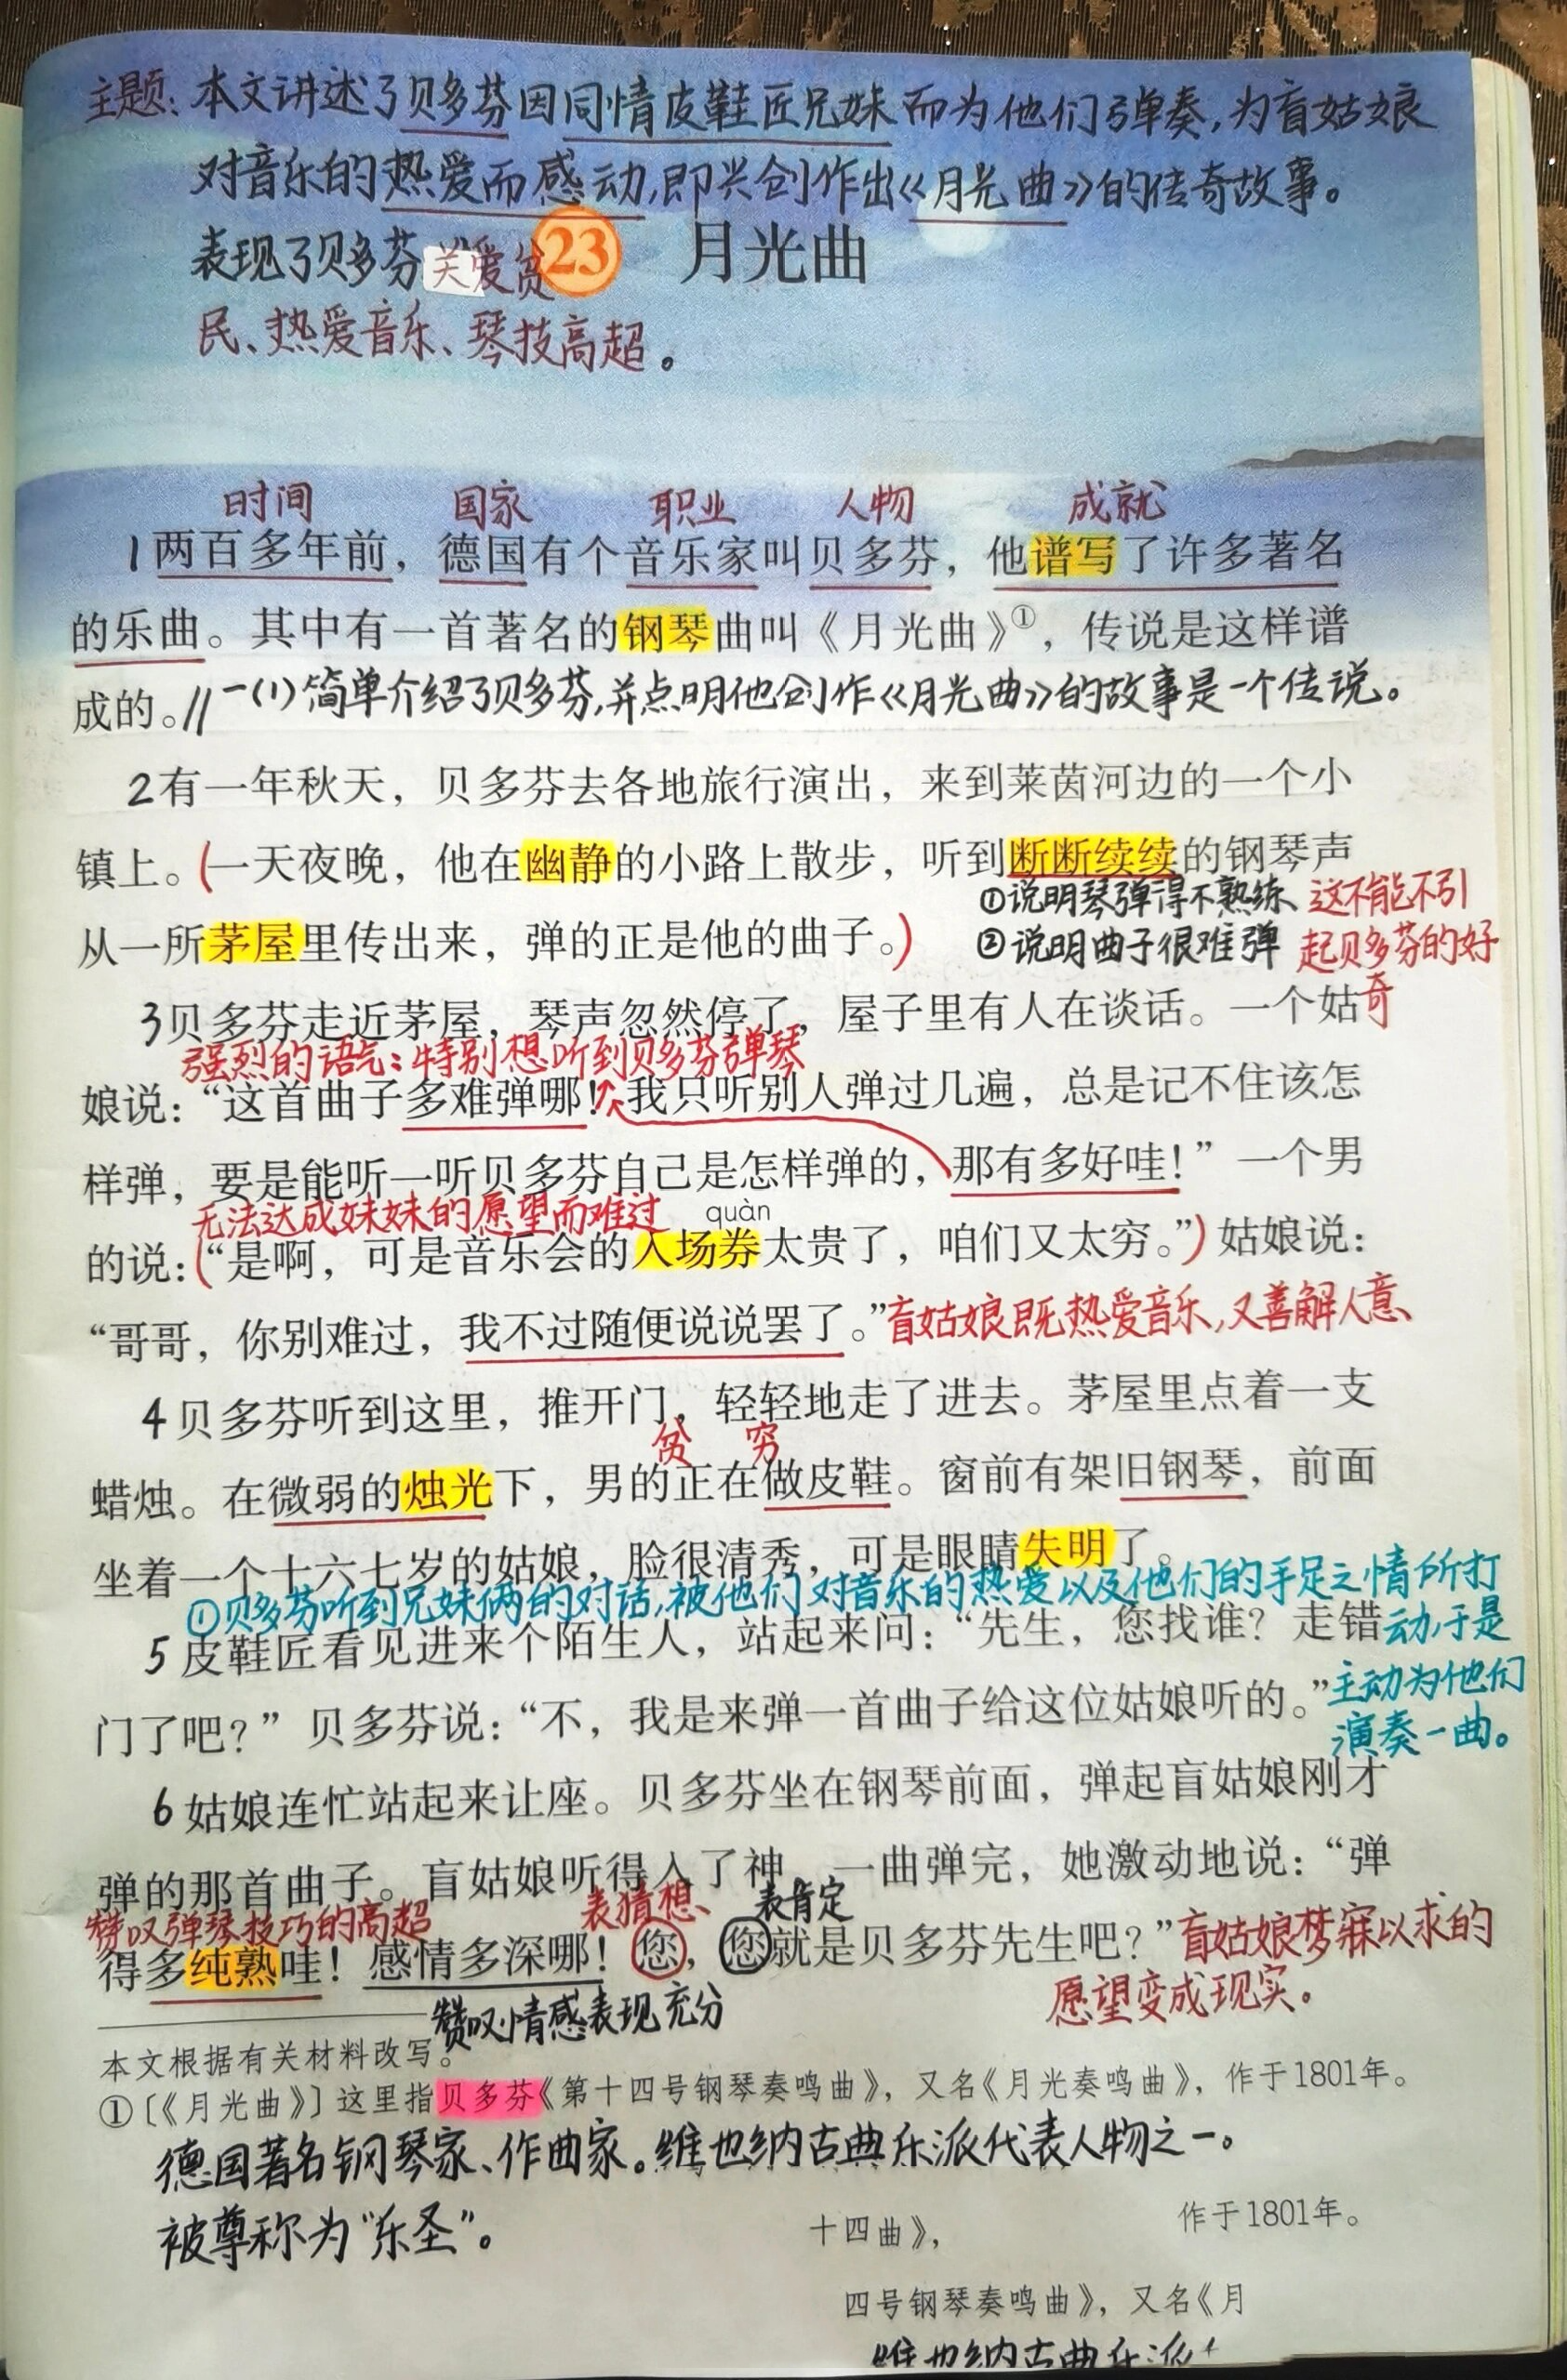 主题：本文讲述了贝多芬因同情皮鞋匠兄妹而为他们弹奏，为盲姑娘
对音乐的热爱而感动，即兴创作出《月光曲》的传奇故事。
表现了贝多芬关爱贫
民、热爱音乐、琴技高超。
23 月光曲
时间 国家 职业 人物 成就
1两百多年前，德国有个音乐家叫贝多芬，他谱写了许多著名
的乐曲。其中有一首著名的钢琴曲叫《月光曲》①，传说是这样谱
成的。// 一(1)简单介绍了贝多芬，并点明他创作《月光曲》的故事是一个传说。
2有一年秋天，贝多芬去各地旅行演出，来到莱茵河边的一个小
镇上。(一天夜晚，他在幽静的小路上散步，听到断断续续的钢琴声
①说明琴弹得不熟练、
②说明曲子很难弹
这不能不引
起贝多芬的好
奇
从一所茅屋里传出来，弹的正是他的曲子。)
3贝多芬走近茅屋，琴声忽然停了，屋子里有人在谈话。一个姑
强烈的语气：特别想听到贝多芬弹琴
娘说：“这首曲子多难弹哪！我只听别人弹过几遍，总是记不住该怎
样弹，要是能听一听贝多芬自己是怎样弹的，那有多好哇！”一个男
无法达成妹妹的愿望而难过
quàn
的说：(“是啊，可是音乐会的入场券太贵了，咱们又太穷。”)姑娘说：
“哥哥，你别难过，我不过随便说说罢了。”盲姑娘既热爱音乐，又善解人意、
4贝多芬听到这里，推开门，轻轻地走了进去。茅屋里点着一支
贫 穷
蜡烛。在微弱的烛光下，男的正在做皮鞋。窗前有架旧钢琴，前面
坐着一个十六七岁的姑娘，脸很清秀，可是眼睛失明了。
①贝多芬听到兄妹俩的对话，被他们对音乐的热爱以及他们的手足之情所打
动，于是
主动为他们
演奏一曲。
5皮鞋匠看见进来个陌生人，站起来问：“先生，您找谁？走错
门了吧？”贝多芬说：“不，我是来弹一首曲子给这位姑娘听的。”
6姑娘连忙站起来让座。贝多芬坐在钢琴前面，弹起盲姑娘刚才
弹的那首曲子。盲姑娘听得入了神，一曲弹完，她激动地说：“弹
赞叹弹琴技巧的高超 表猜想、 表肯定
得多纯熟哇！感情多深哪！您，您就是贝多芬先生吧？”盲姑娘梦寐以求的
愿望变成现实。
赞叹情感表现充分
本文根据有关材料改写。
①〔《月光曲》〕这里指贝多芬《第十四号钢琴奏鸣曲》，又名《月光奏鸣曲》，作于1801年。
德国著名钢琴家、作曲家。维也纳古典乐派代表人物之一。
被尊称为“乐圣”。
十四曲》， 作于1801年。
四号钢琴奏鸣曲》，又名《月
维也纳古典乐派